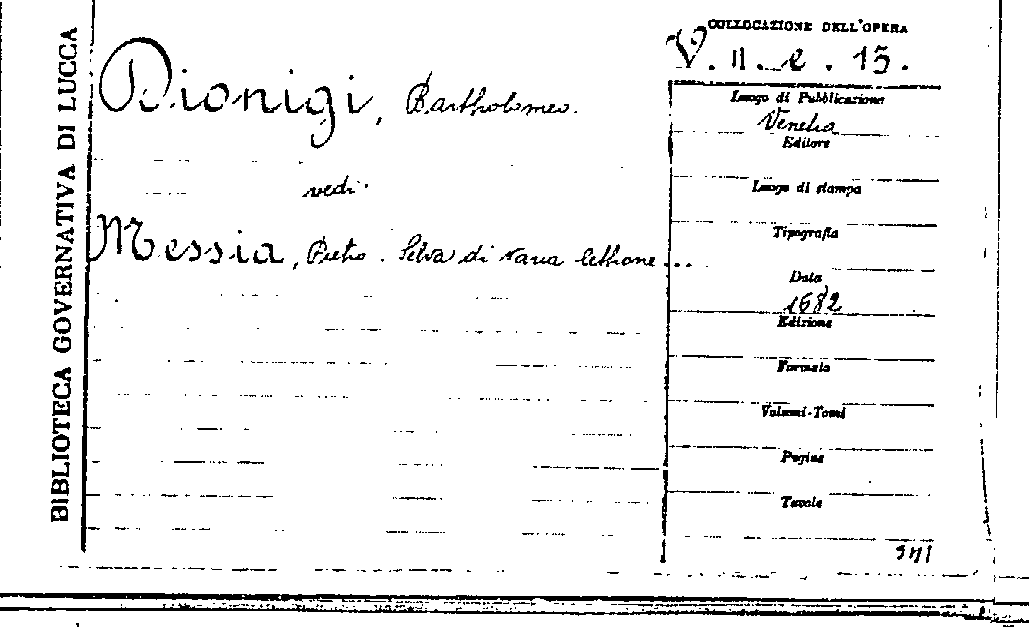 BIBLIOTECA GOVERNATIVA DI LUCCA
COLLOCAZIONE DELL'OPERA
V. II. e. 15.
Dionigi, Bartholomeo.
vedi
Messia, Pietro. Selva di varia lettione...
Luogo di Pubblicazione
Venetia
Editore
Luogo di stampa
Tipografia
Data
1682
Edizione
Formato
Volumi-Tomi
Pagine
Tavole